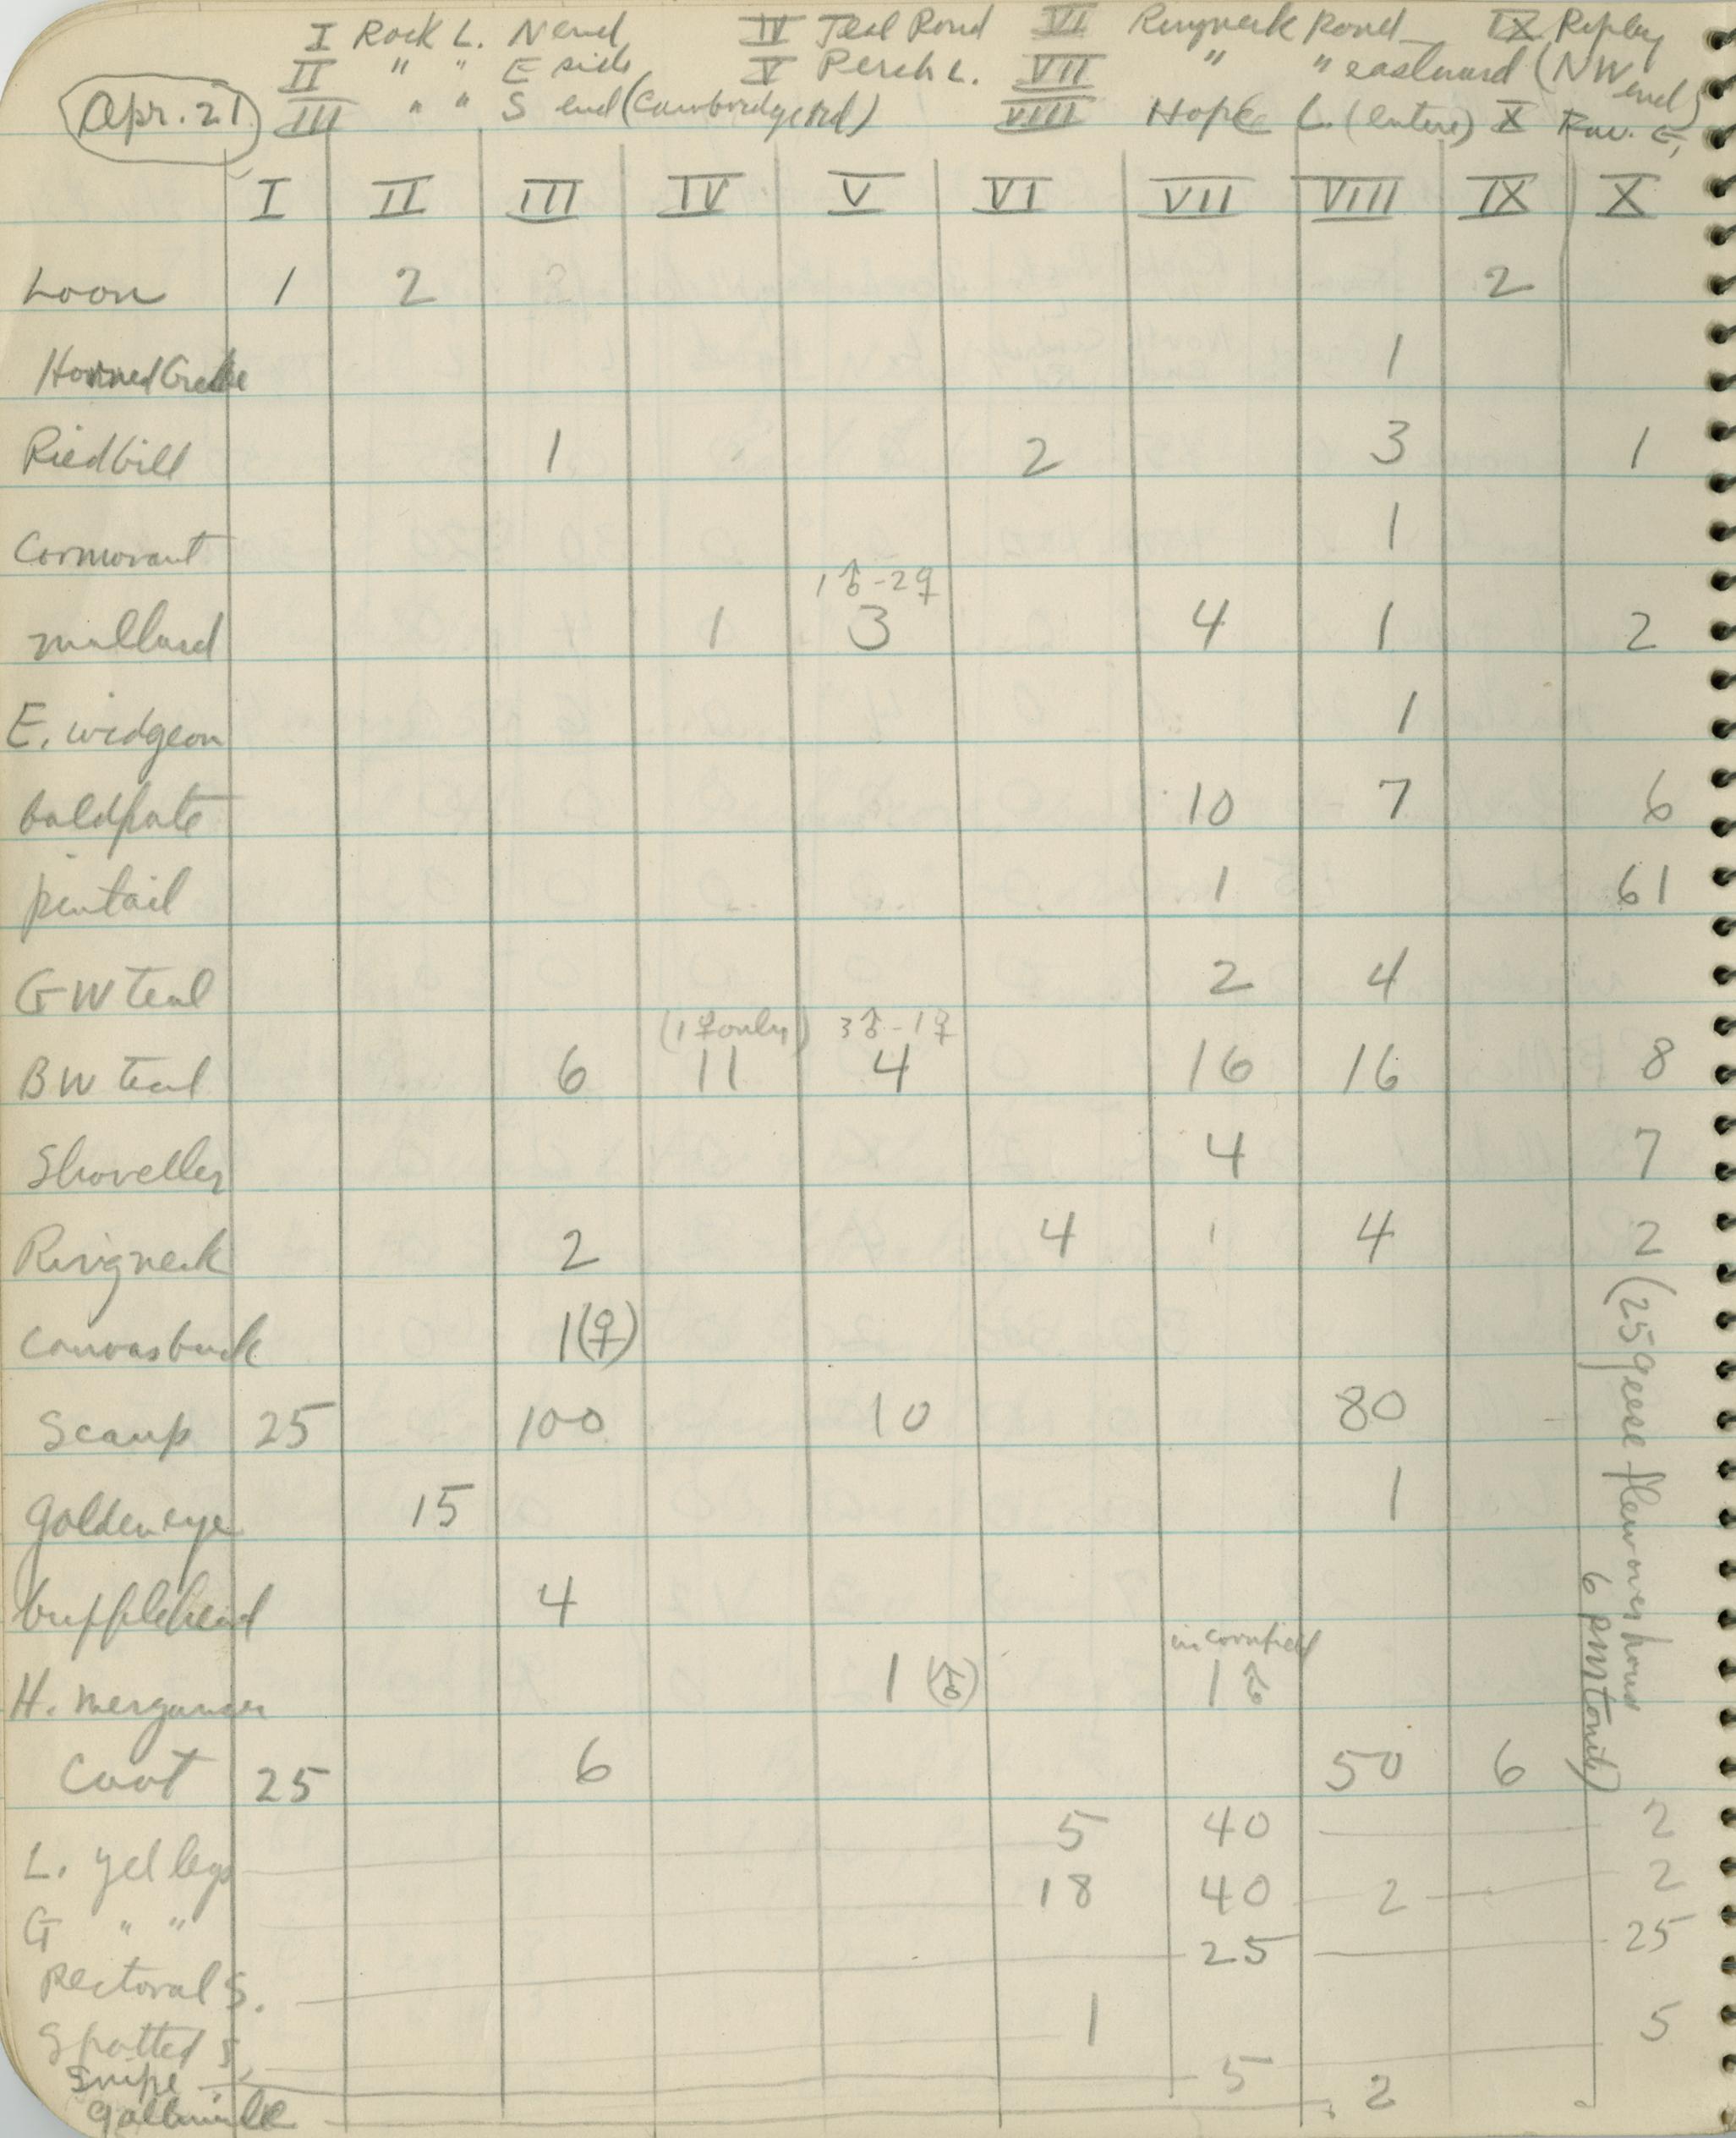 I Rock L. N end IV Teal Pond VI Ringneck Pond IX Ripley
II " " E side V Perch L. VII " " eastward (NW end)
Apr. 21 III " " S end (Cambridge Rd) VIII Hope L. (entire) X Rav. E,
I II III IV V VI VII VIII IX X
Loon 1 2 2
Horned Grebe 1
Piedbill 1 2 3 1
Cormorant 1
1♂-2♀
mallard 1 3 4 1 2
E. widgeon 1
baldpate 10 7 6
pintail 1 61
GW teal 2 4
(1♀ only) 3♂-1♀
BW teal 6 11 4 16 16 8
Shoveller 4 7
Ringneck 2 4 1 4 2
Canvasback 1(♀)
Scaup 25 100 10 80
Goldeneye 15 1
bufflehead 4
in cornfield
H. merganser 1 (♂) 1♂
Coot 25 6 50 6
L. yel legs 5 40 2
G " " 18 40 2 2
Pectoral S. 25 25
Spotted S. 1 5
Snipe 5
gallinule 2
(25 geese flew over house
6 PM tonite)